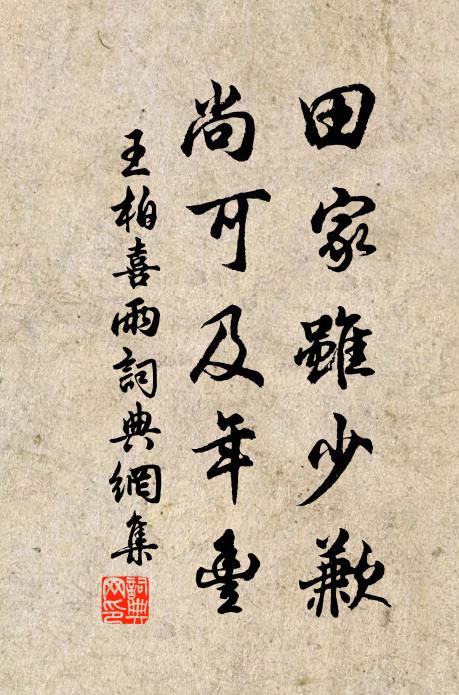 田家雖少歉
尚可及年豐
王柏喜雨詞典網集
詞典網印